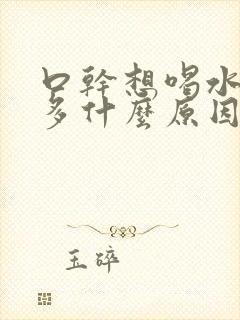 口幹想喝水
多什麼原因
玉碎